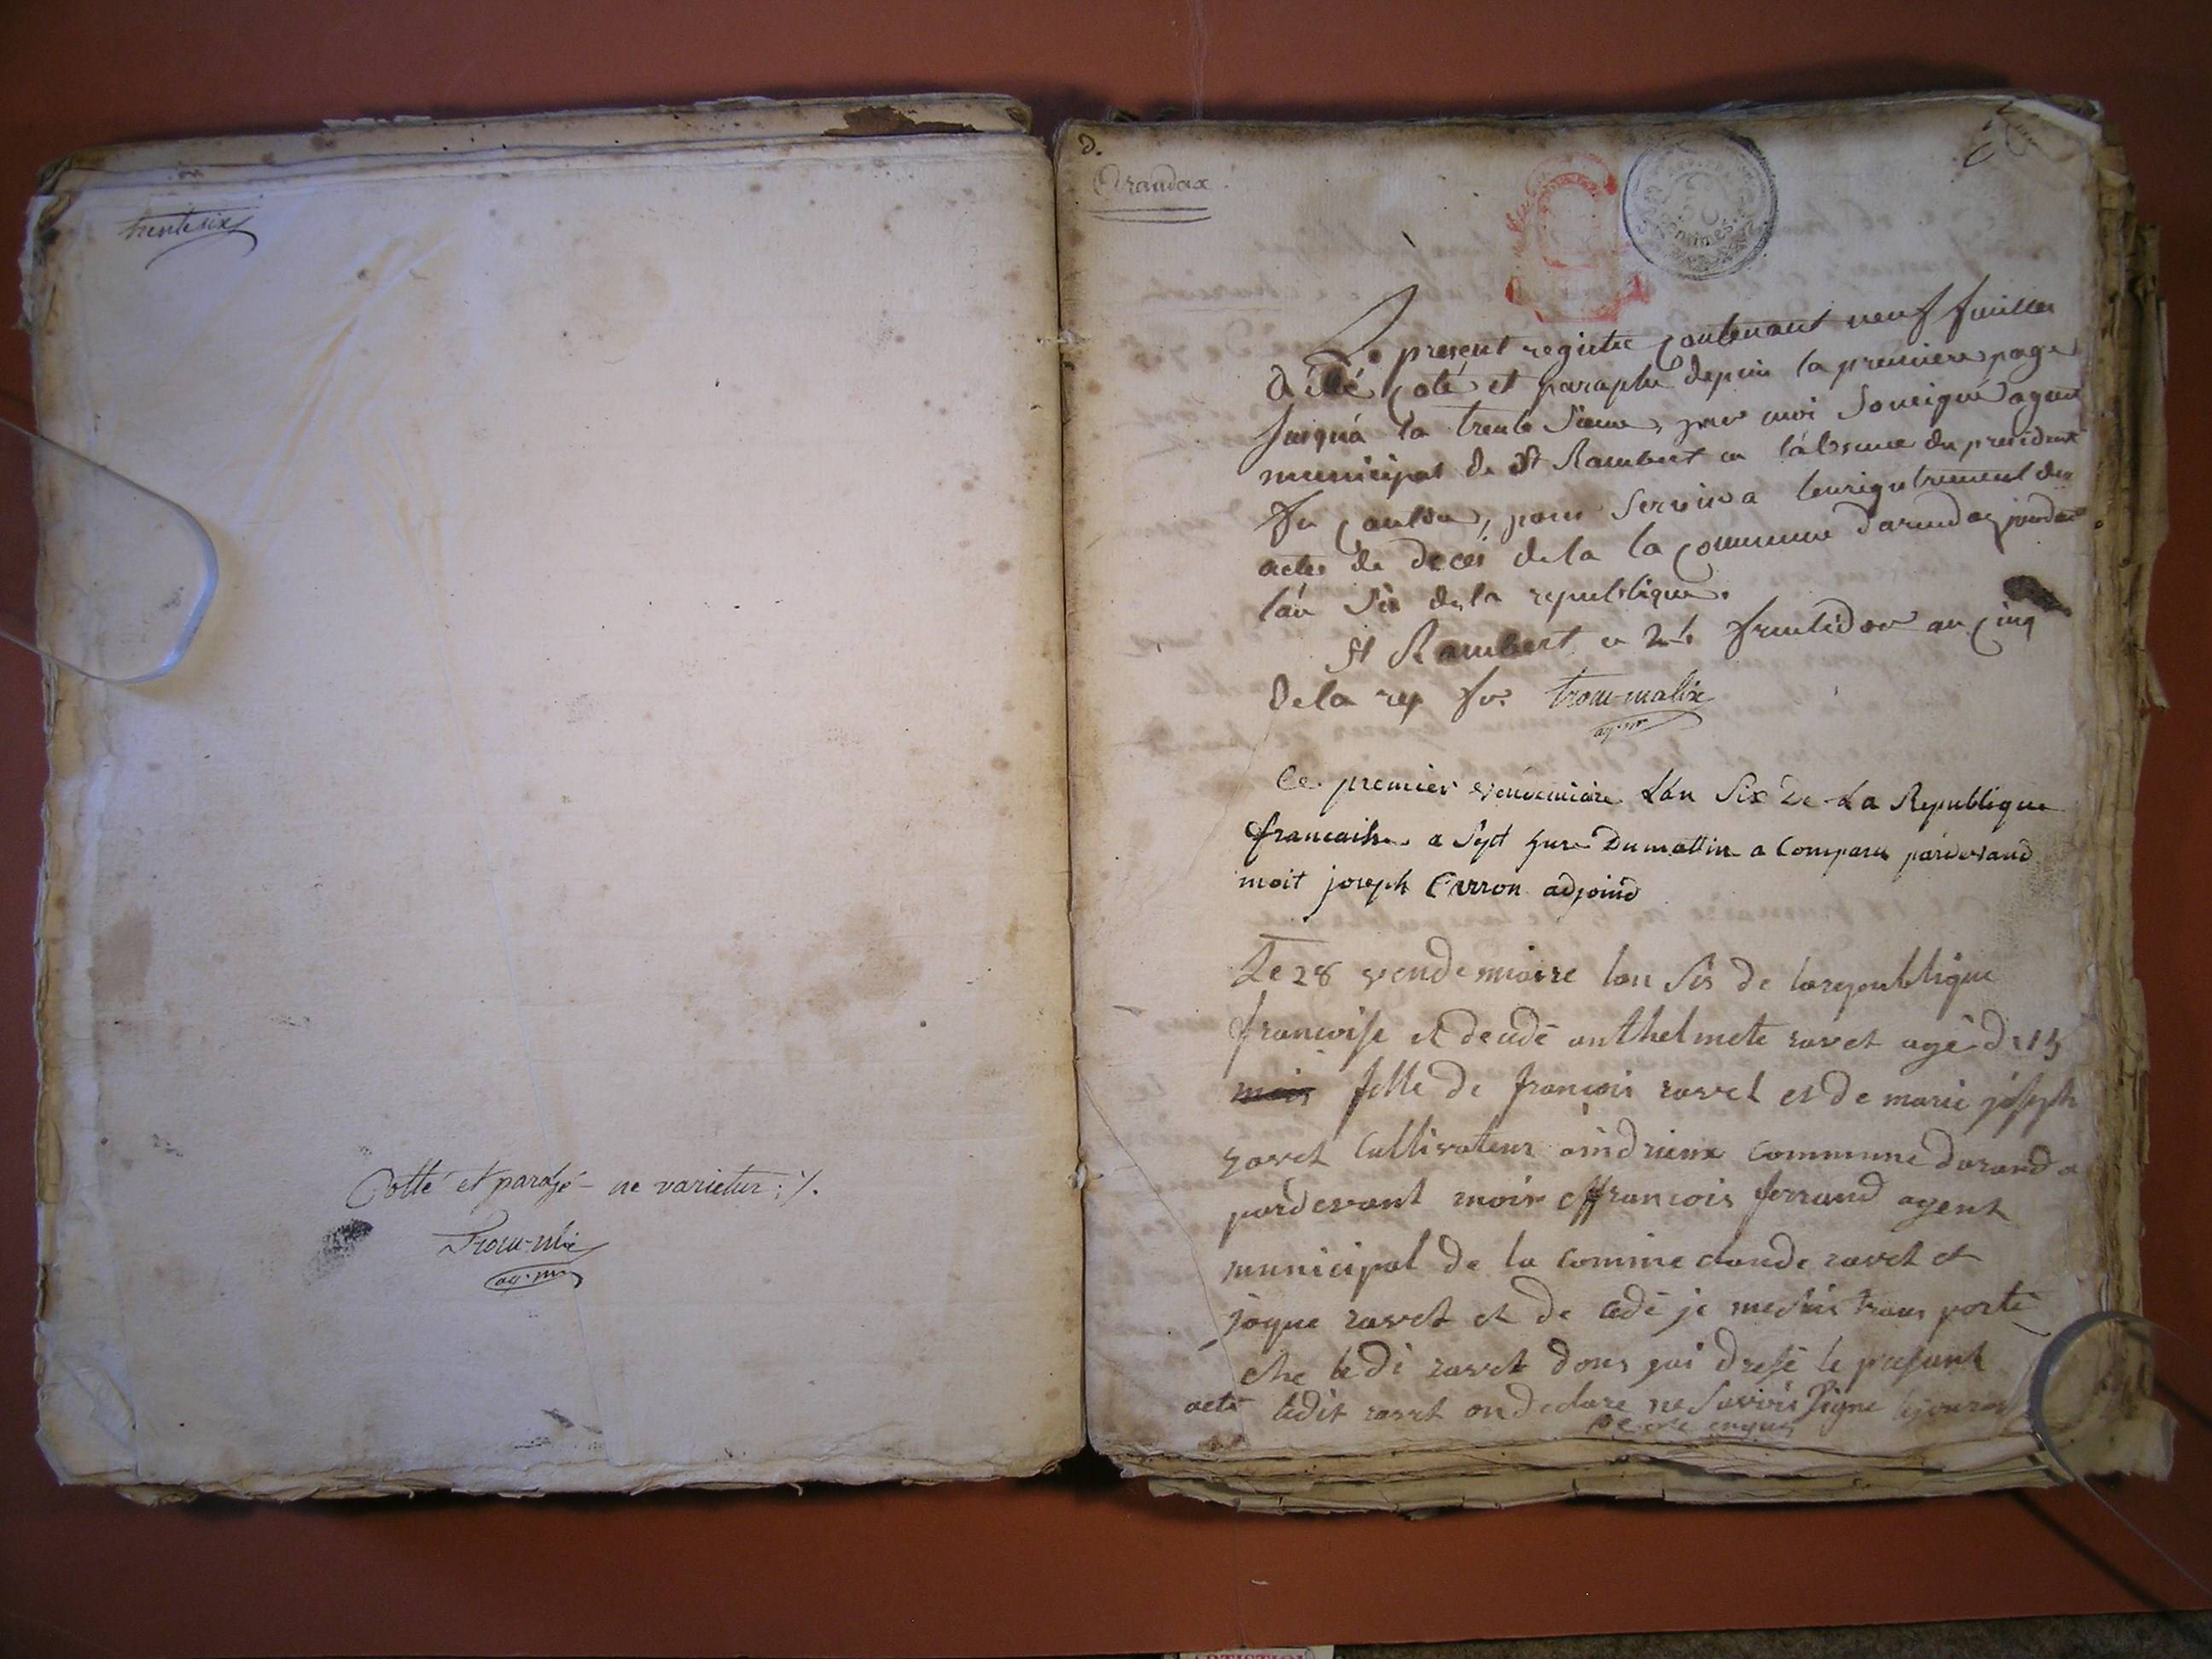 trente six
Cotté et paraphé ne varietur ;/.
Trocu-mlix
ag. m.
D.
Arandax.
centimes
Le present registre contenant neuf feuilles
a été coté et paraphé depuis la premiere page
jusqu'á la trente sieme, par moi Sousigné agent
municipal de St Rambert en l'absence du president
du canton, pour servir a lenrigistrement des
actes de décés de la la commune darandas pendant
l'an six de la republique.
St Rambert ce 24 fructidor an cinq
de la rep fr.
ag. m.
Ce premier vendemiaire Lan Six De La Republique
francaise a Sept hure Du mattin a Comparu pardevand
moit joseph Carron adjoind
Le 28 vendemiaire lan sis de la republique
francoise et decedé anthelmete ravet agé de 15
mois felle de francois ravet et de marie joseph
ravet Cultivateur aindrieux commune daranda
pardevant mois francois ferrand agent
municipal de la comine claude ravet et
jaque ravet et de cedé je me suis trans porté
che ledi ravet dons jai dresé le present
acte ledit ravet on declare ne savoir signe